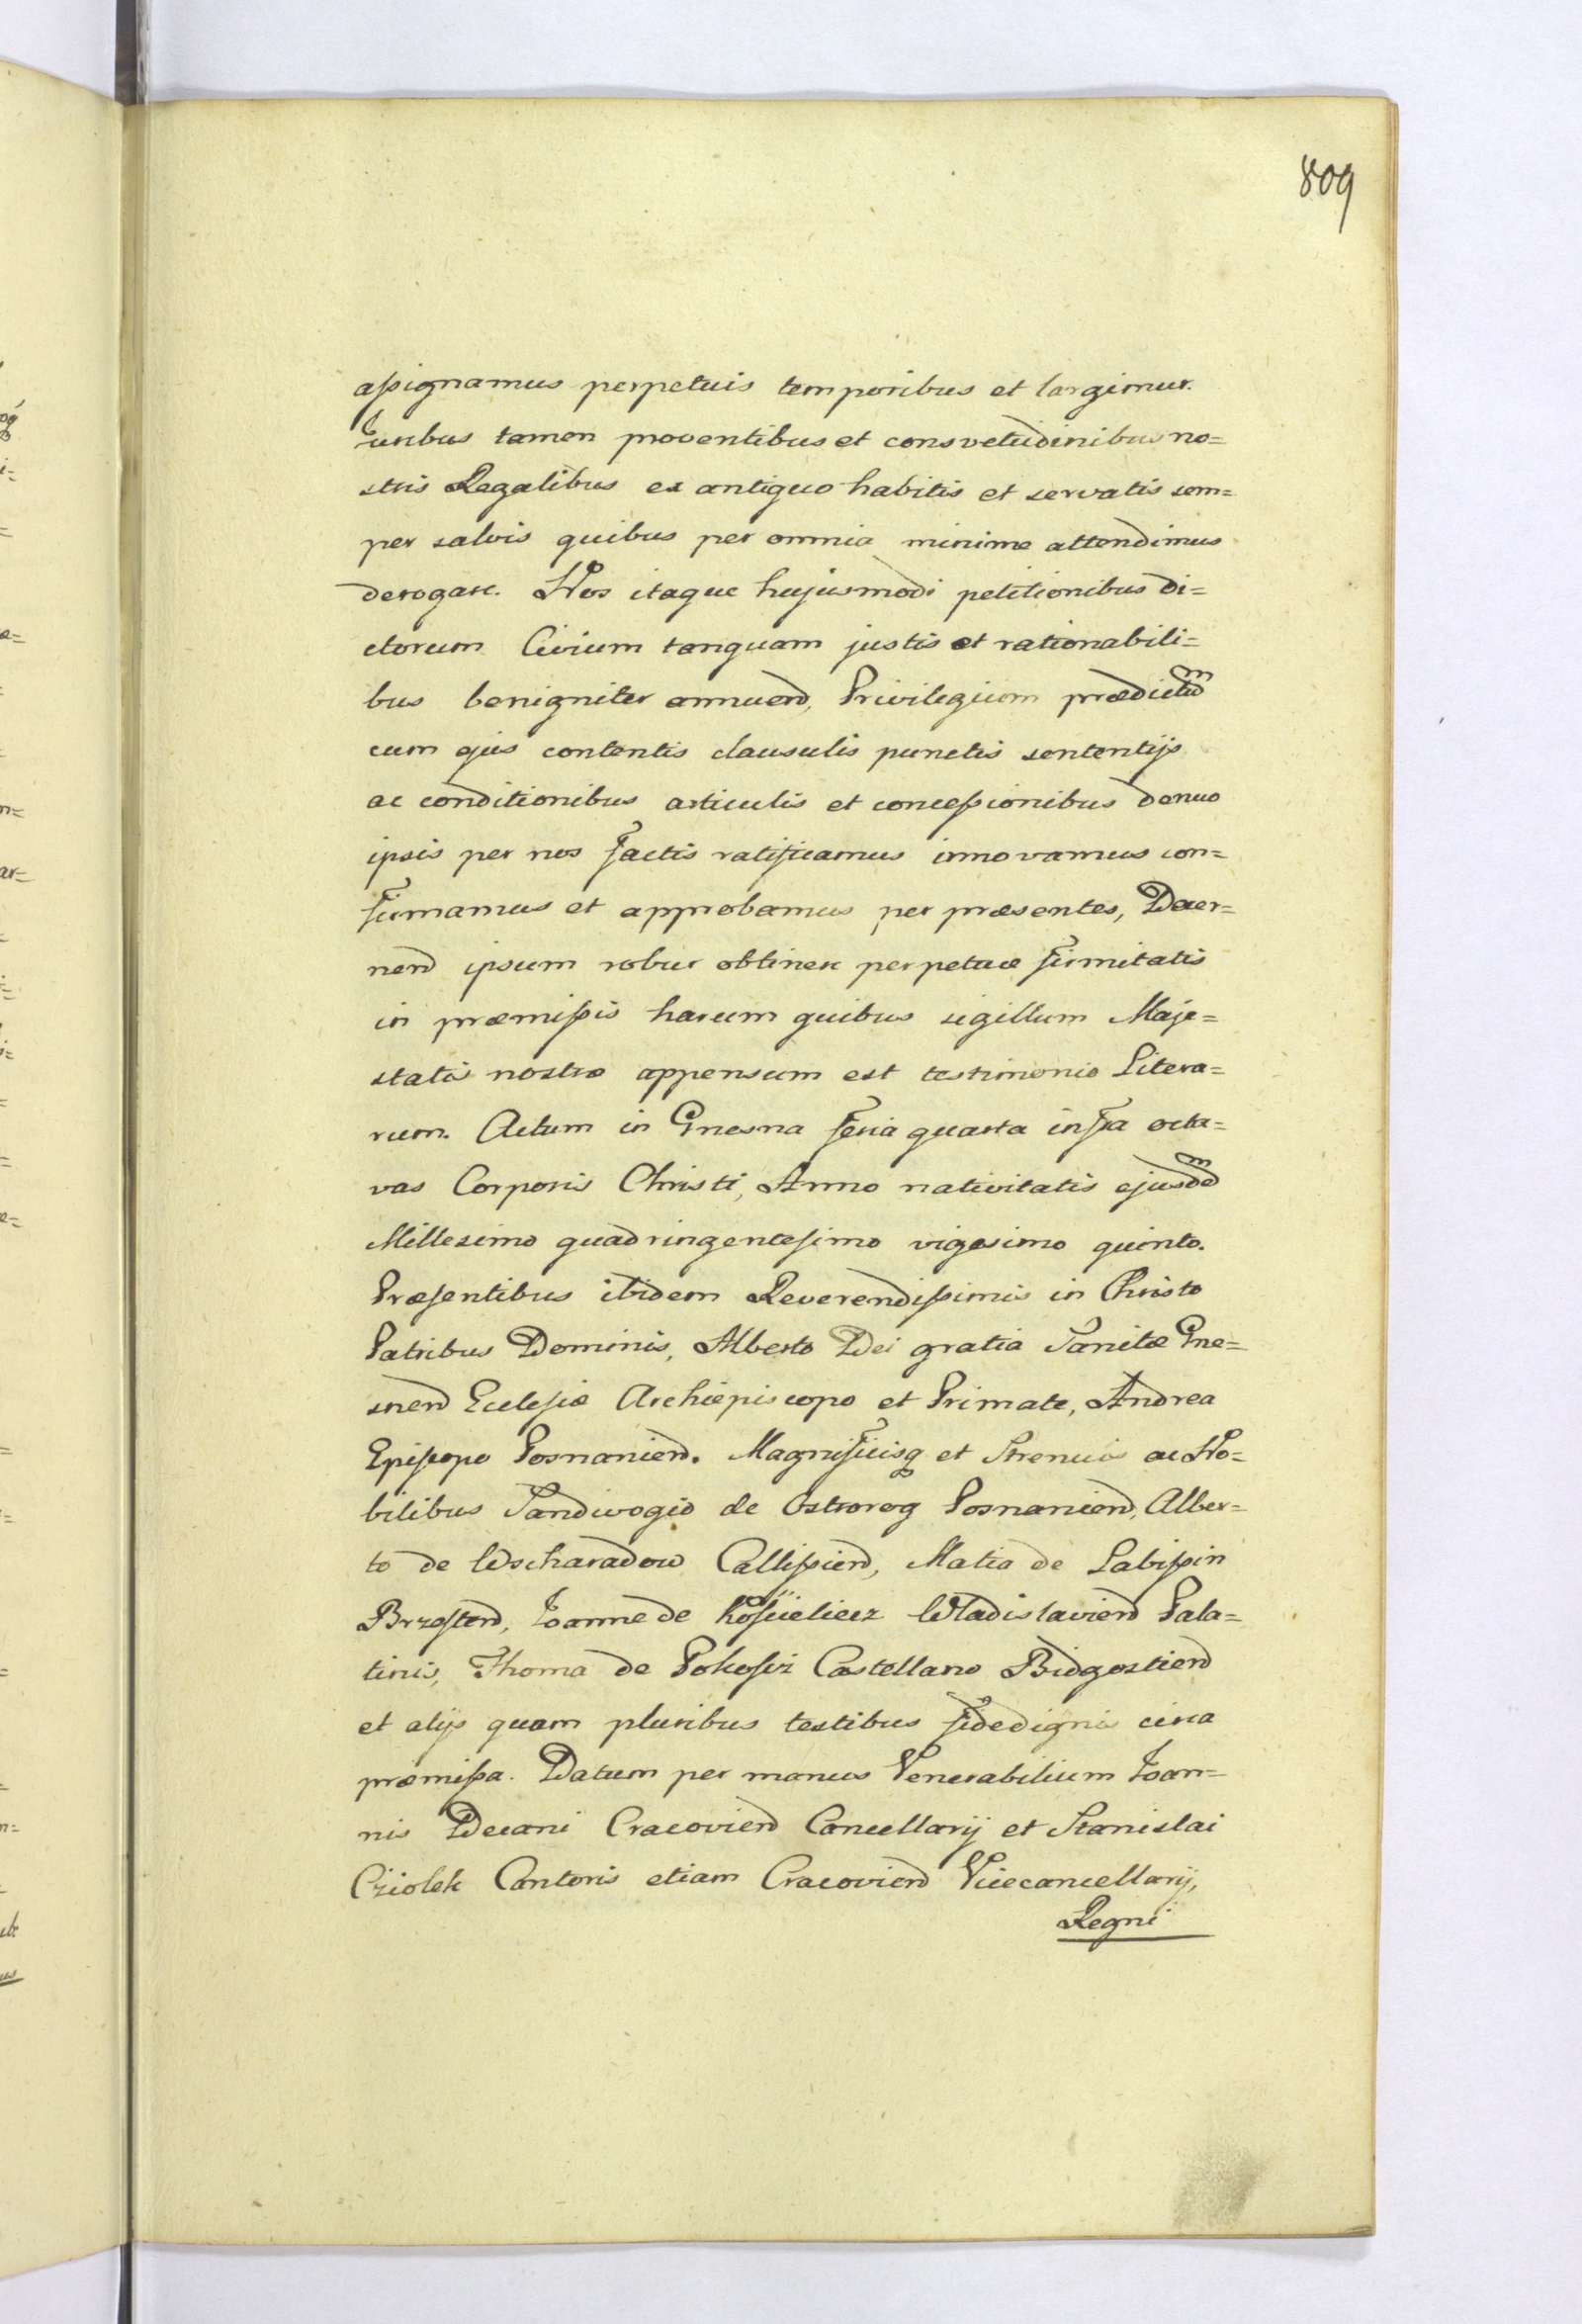 809
assignamus perpetuis temporibus et largimur.
Juribus tamen proventibus et consvetudinibus no=
stris Regalibus ex antiquo habitis et servatis sem=
per salvis quibus per omnia minime attendimus
derogare. Nos itaque hujusmodi petitionibus di=
ctorum Civium tanquam justis et rationabili=
bus benigniter annuend, Privilegium prædictum
cum ejus contentis clausulis punctis sententijs
ac conditionibus articulis et concessionibus denuo
ipsis per nos factis ratificamus innovamus con=
firmamus et approbamus per præsentes, Decer=
nend ipsum robur obtinere perpetuæ firmitatis
in præmissis harum quibus sigillum Maje=
statis nostræ appensum est testimonio Litera=
rum. Actum in Gnesna feria quarta infra octa=
vas Corporis Christi, Anno nativitatis ejusdem
Millesimo quadringentesimo vigesimo quinto.
Præsentibus ibidem Reverendissimis in Christo
Patribus Dominis, Alberto Dei gratia Sanctæ Gne=
snen Eclesiæ Archiepiscopo et Primate, Andrea
Episcopo Posnanien. Magnificisq et Strenuis ac No=
bilibus Sandivogio de Ostrorog Posnanien, Alber=
to de Wscharadow Callissien, Matia de Labissin
Brzesten, Joanne de Kosćielecz Wladislavien Pala=
tinis, Thoma de Pokosci Castellano Bidgostien
et alijs quam pluribus testibus fidedignis circa
præmissa. Datum per manus Venerabilium Joan=
nis Decani Cracovien Cancellarij et Stanislai
Cziolek Cantoris etiam Cracovien Vicecancellarij,
Regni